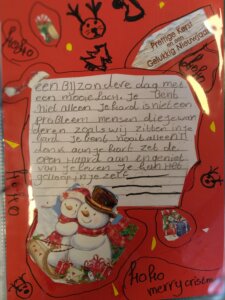 Prettige Kerst
en een
Gelukkig Nieuwjaar
HoHo
een Bijzondere dag met
een mooie lach. Je bent
niet alleen Je hard is niet een
probleem mensen die je waar
deren zoals wij zitten in je
hard Je bent nooit alleen
denk aan je hart zet de
open haard aan en geniet
van je leven Je kan Het
geloof in je zelf
HoHo
HoHo
HoHo
merry cristm